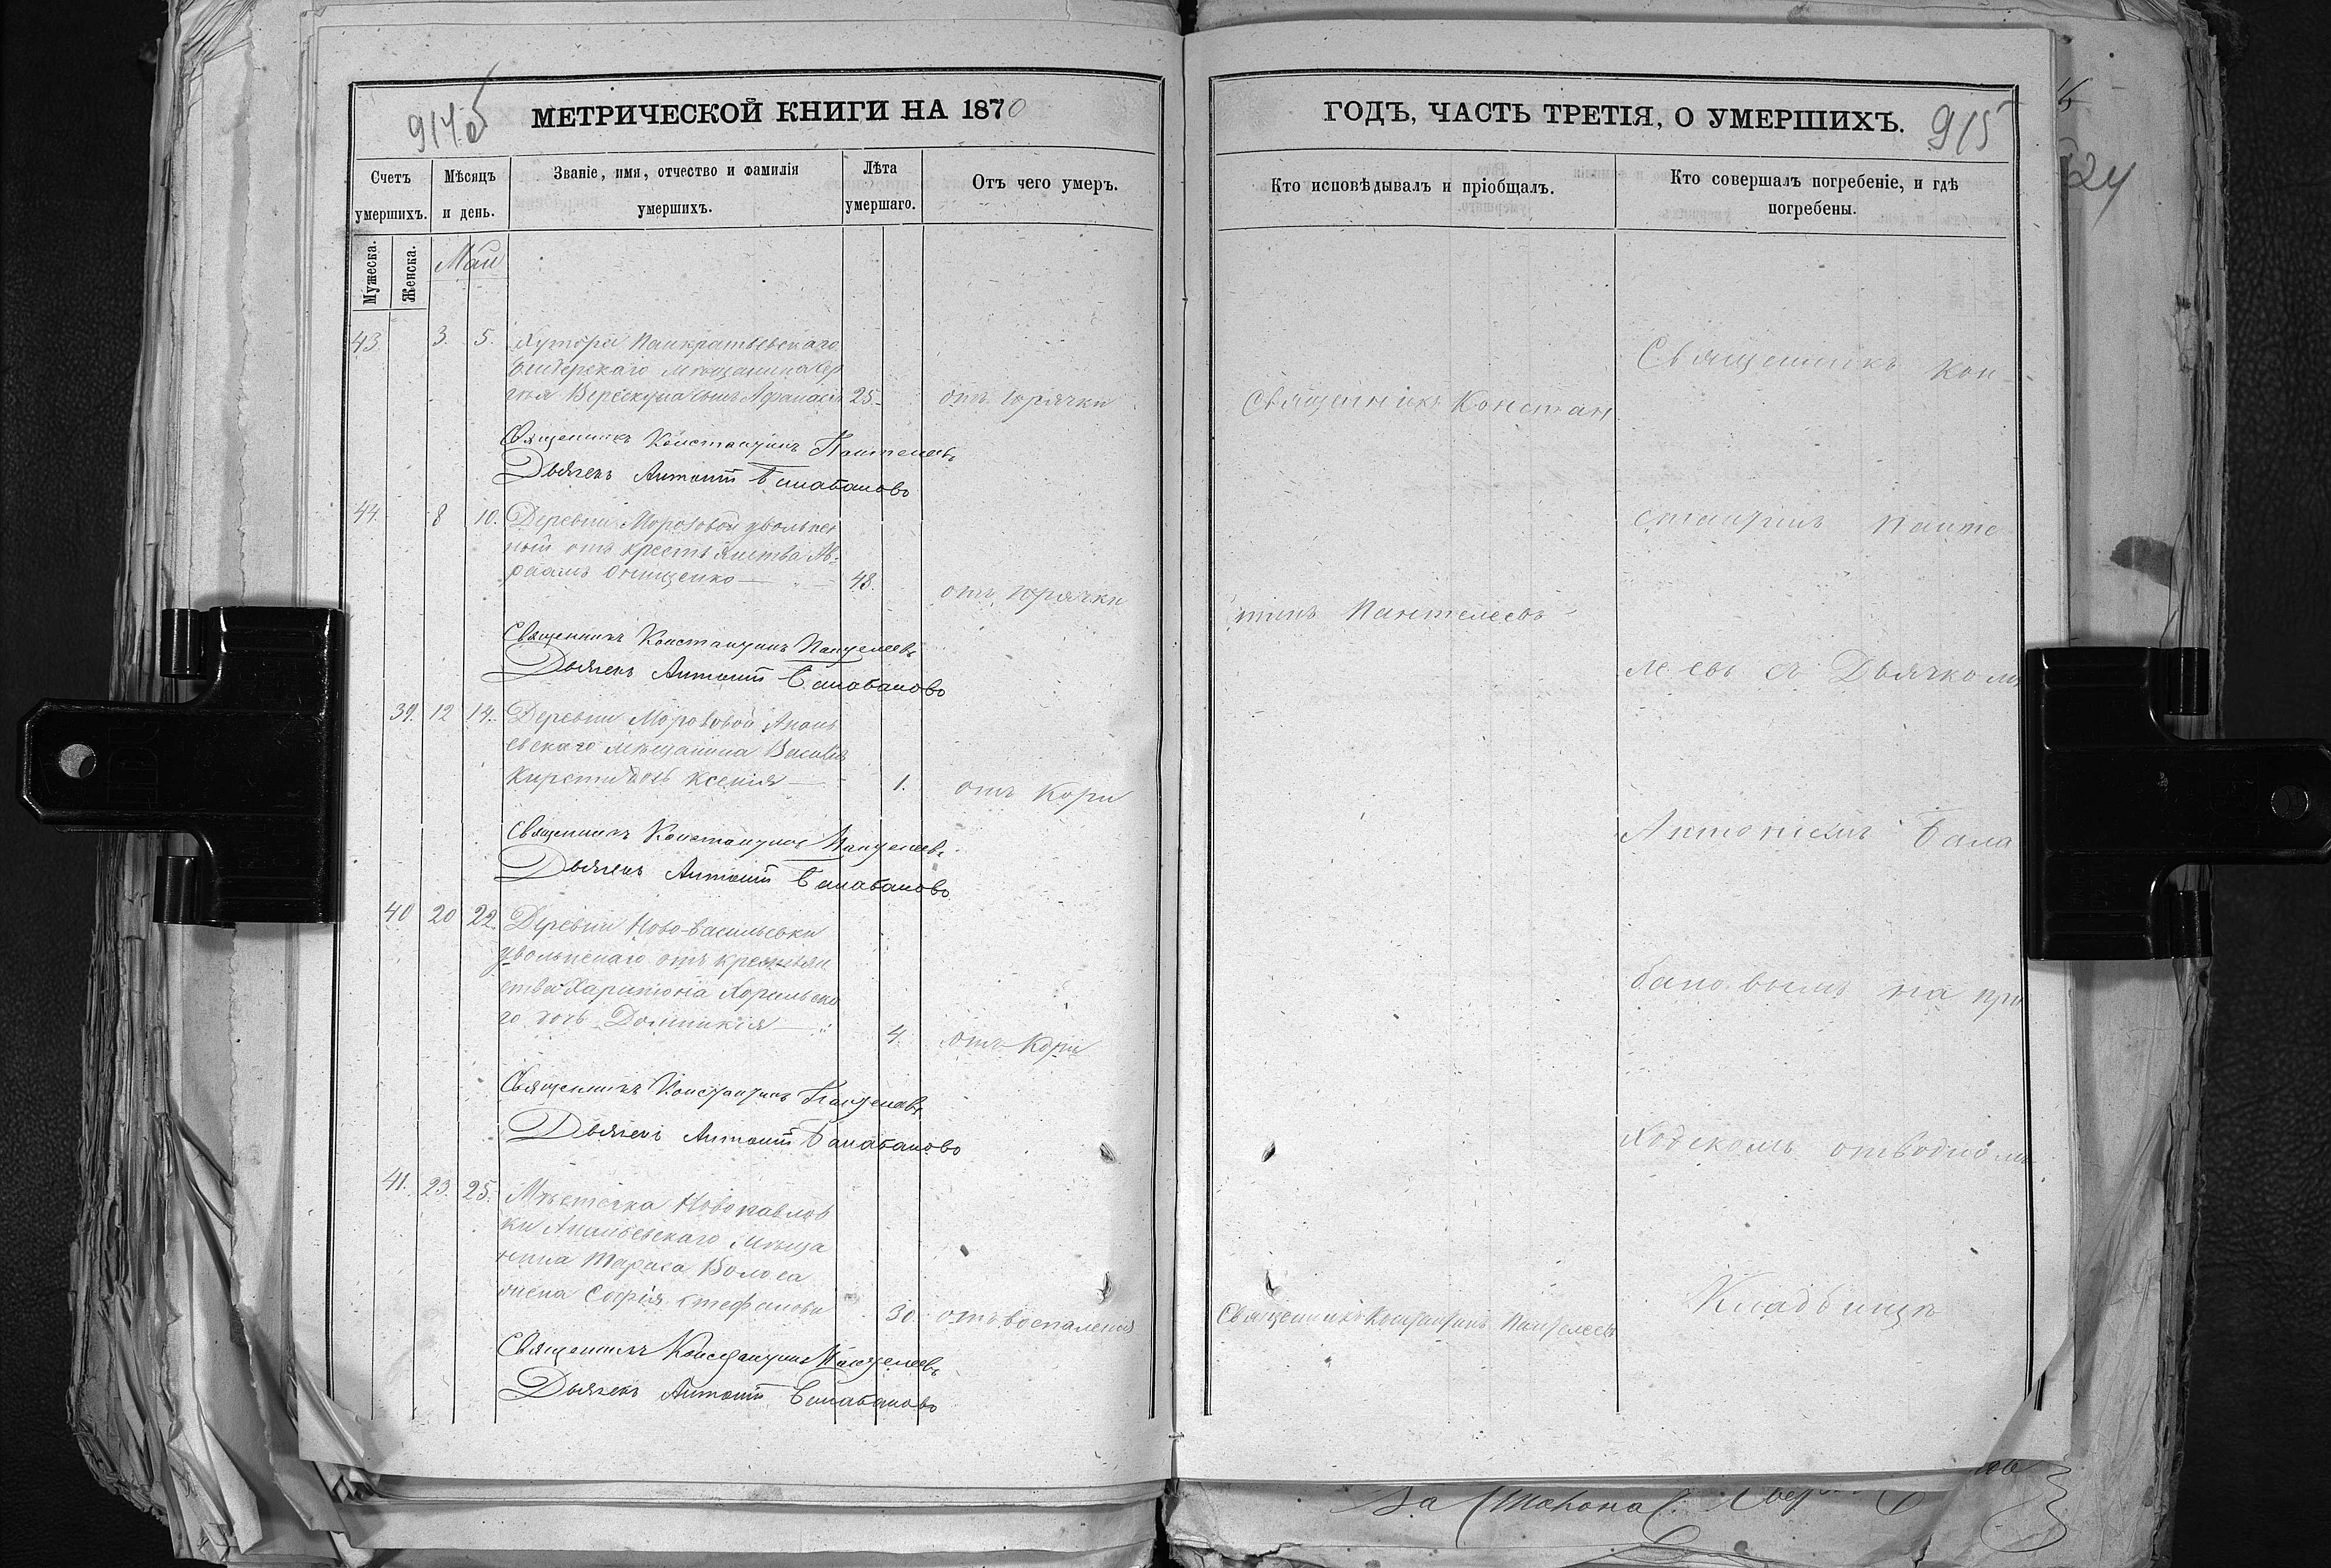 914об
МЕТРИЧЕСКОЙ КНИГИ НА 1870
Счетъ умершихъ.
Мѣсяцъ и день.
Званіе, имя, отчество и фамилія умершихъ.
Лѣта умершаго.
Отъ чего умеръ.
Мужеска.
Женска.
Май
43. 3. 5. Хутора Панкратьевскаго
мѣщанина Сер
гѣя сынъ Афанасій 25. отъ горячки
Священникъ Константинъ Пантелеевъ
Дьячекъ Антоній Балабановъ
44. 8 10. Деревни Морозовой уволнен
ный отъ крестьянства Ав-
раамъ Онищенко 48. отъ горячки
Священникъ Константинъ Пантелеевъ
Дьячекъ Антоній Балабановъ
39. 12 14. Деревни Морозовой Анань
евскаго мѣщанина Василія
дочь Ксенія 1. отъ кори
Священникъ Константинъ Пантелеевъ
Дьячекъ Антоній Балабановъ
40 20 22. Деревни Ново-Васильевки
уволненаго отъ крестьян
ства Харитонія Хорольска
го дочь Домникія 4. отъ кори
Священникъ Константинъ Пантелеевъ
Дьячекъ Антоній Балабановъ
41. 23. 25. Мѣстечка Новопавлов
ки Ананьевскаго мѣща
нина Тараса Волоса
жена Софія Стефанова 30. отъ воспаленія
Священникъ Константинъ Пантелеевъ
Дьячекъ Антоній Балабановъ
ГОДЪ, ЧАСТЬ ТРЕТІЯ, О УМЕРШИХЪ.
915
Кто исповѣдывалъ и пріобщалъ.
Кто совершалъ погребеніе, и гдѣ погребены.
Священникъ Констан
тинъ Пантелеевъ
Священникъ Константинъ Пантелеевъ
Священникъ Кон
стантинъ Панте
леевъ съ Дьячкомъ
Антоніемъ Бала
бановымъ на при
ходскомъ отводномъ
Кладбищѣ
24